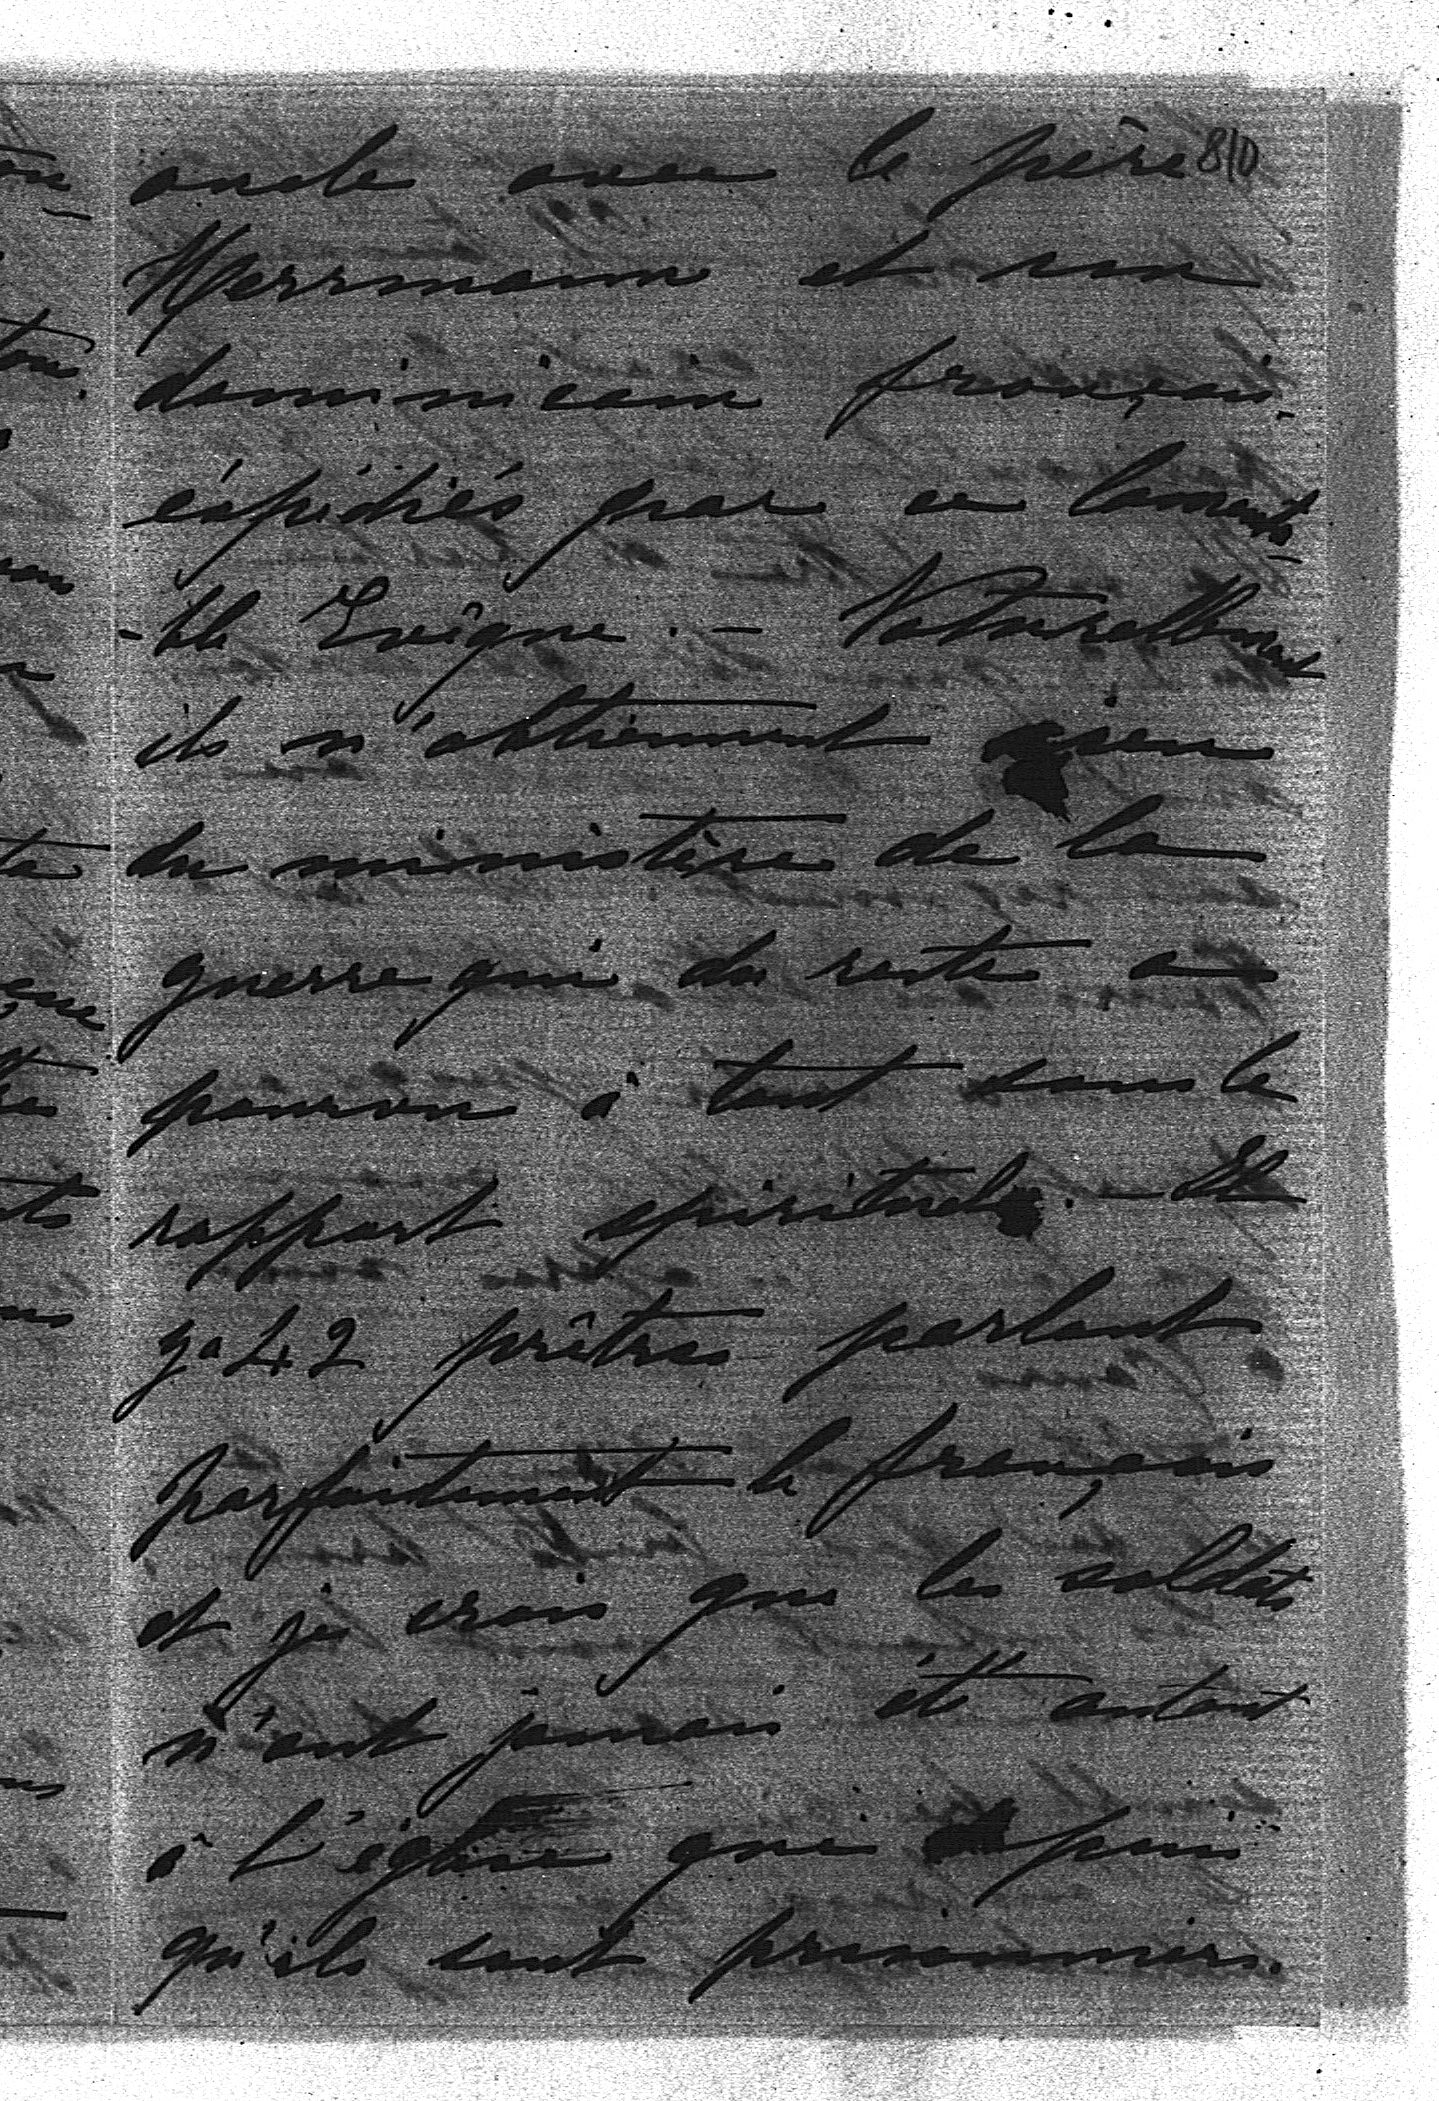 810
oncle avec le père
Herrmann et un
dominicain français
éxpédiés par ce lamenta
-ble Evêque. - Naturellement
ils n'obtiennent rien
du ministère de la
guerre qui du reste a
pourvu à tout sous le
rapport spirituel. - Il
y a 42 prêtres parlant
parfaitement le français
et je crois que les soldats
n'ont jamais été autant
à l'église que depuis
qu'ils sont prisonniers.